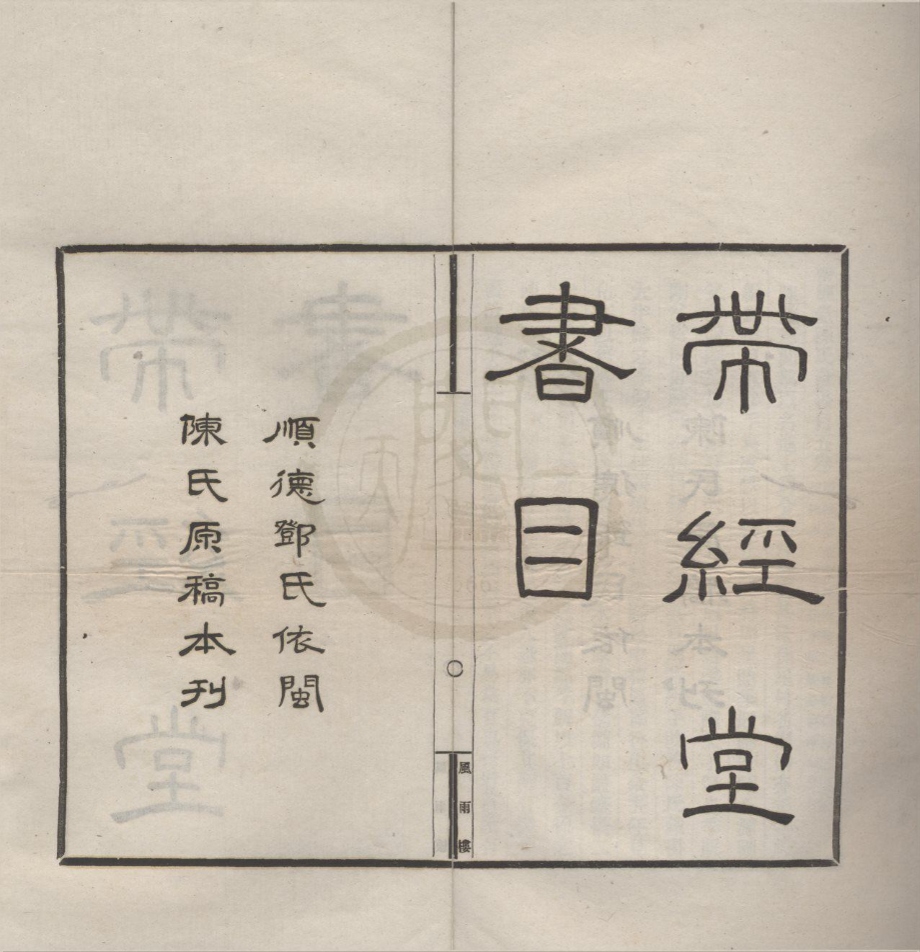 帶經堂
書目
風雨樓
順德鄧氏依閩
陳氏原稿本刊